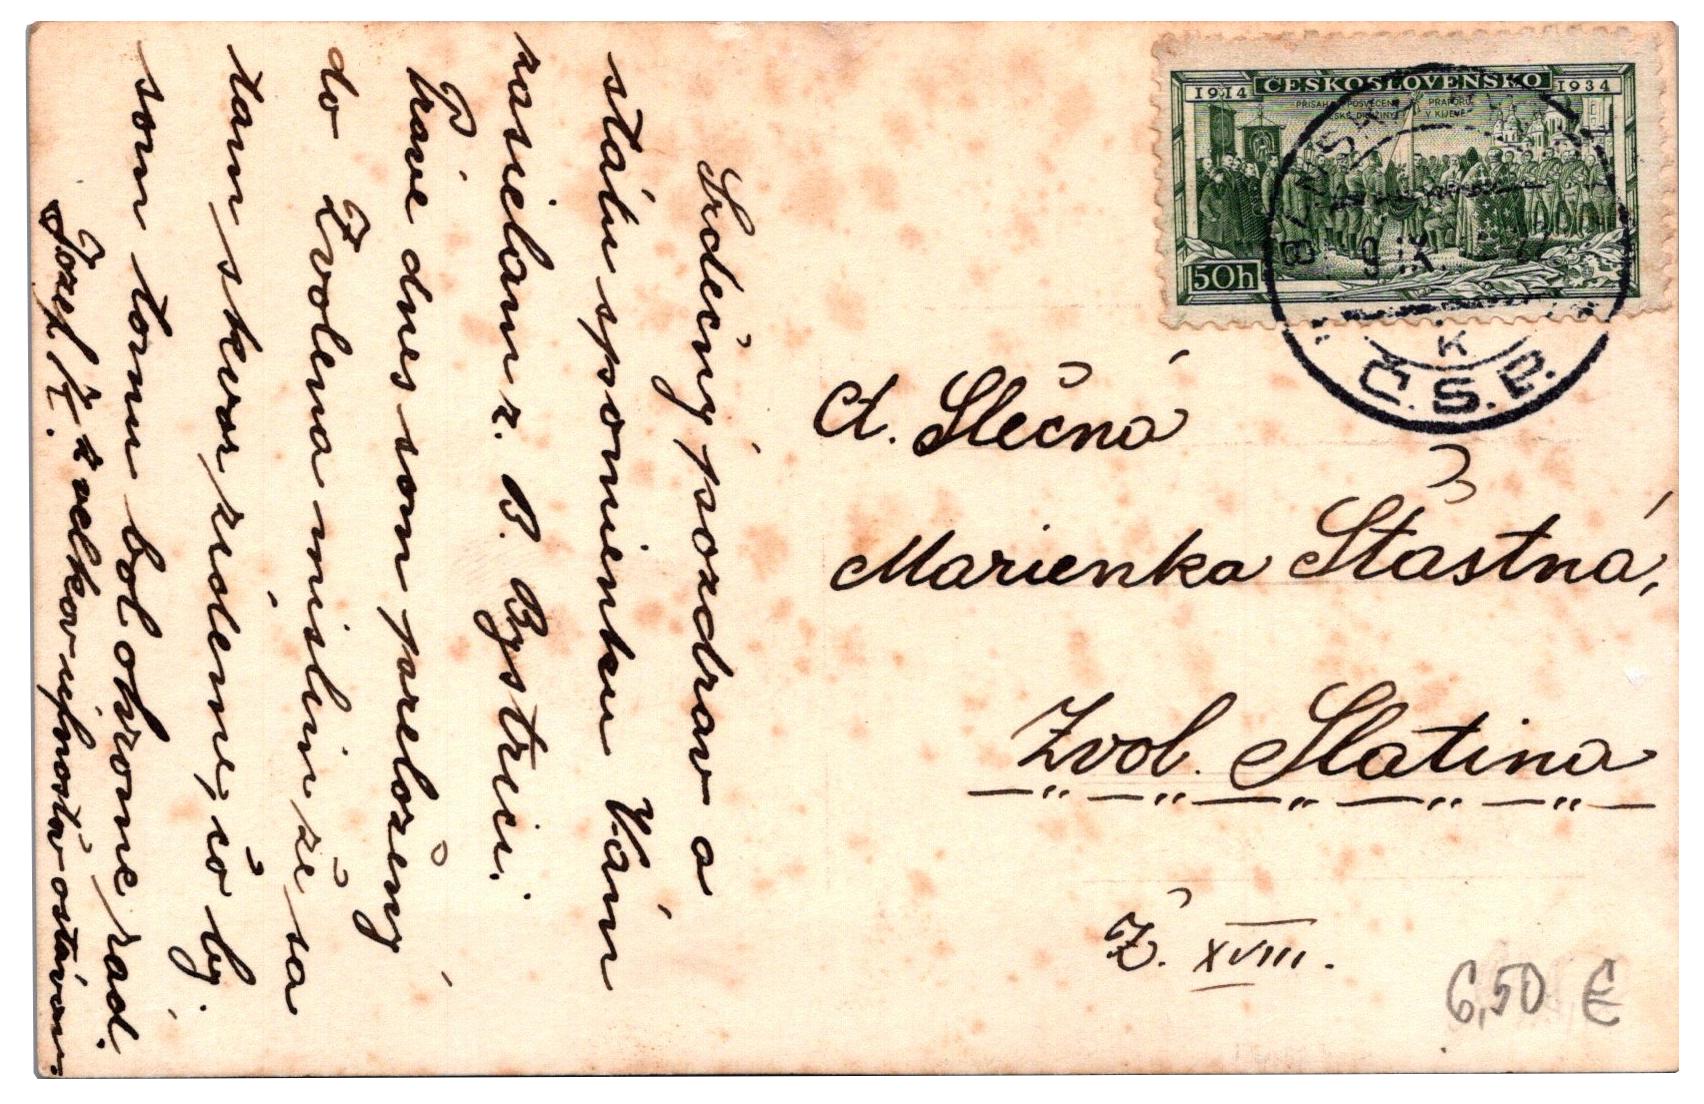 Srdečný pozdrav a
stálu spomienku Vám
zasielam z. B. Bystrici.
Práve dnes som preložený
do Zvolena mislim že sa
tam skoro zídeme, čo by
som tomu bol ohromne rad.
Jozef K. z velkov ufnosťuv ostávam
1914 ČESKOSLOVENSKO 1934
PŘÍSAHA A POSVĚCENÍ PRAPORU
ČESKÉ DRUŽINY V KIJEVĚ
50h
9 IX
K
Č.S.P.
Ct. Slečná
Marienka Štástná,
Zvol. Slatina
Ž. XVIII.
6,50 €